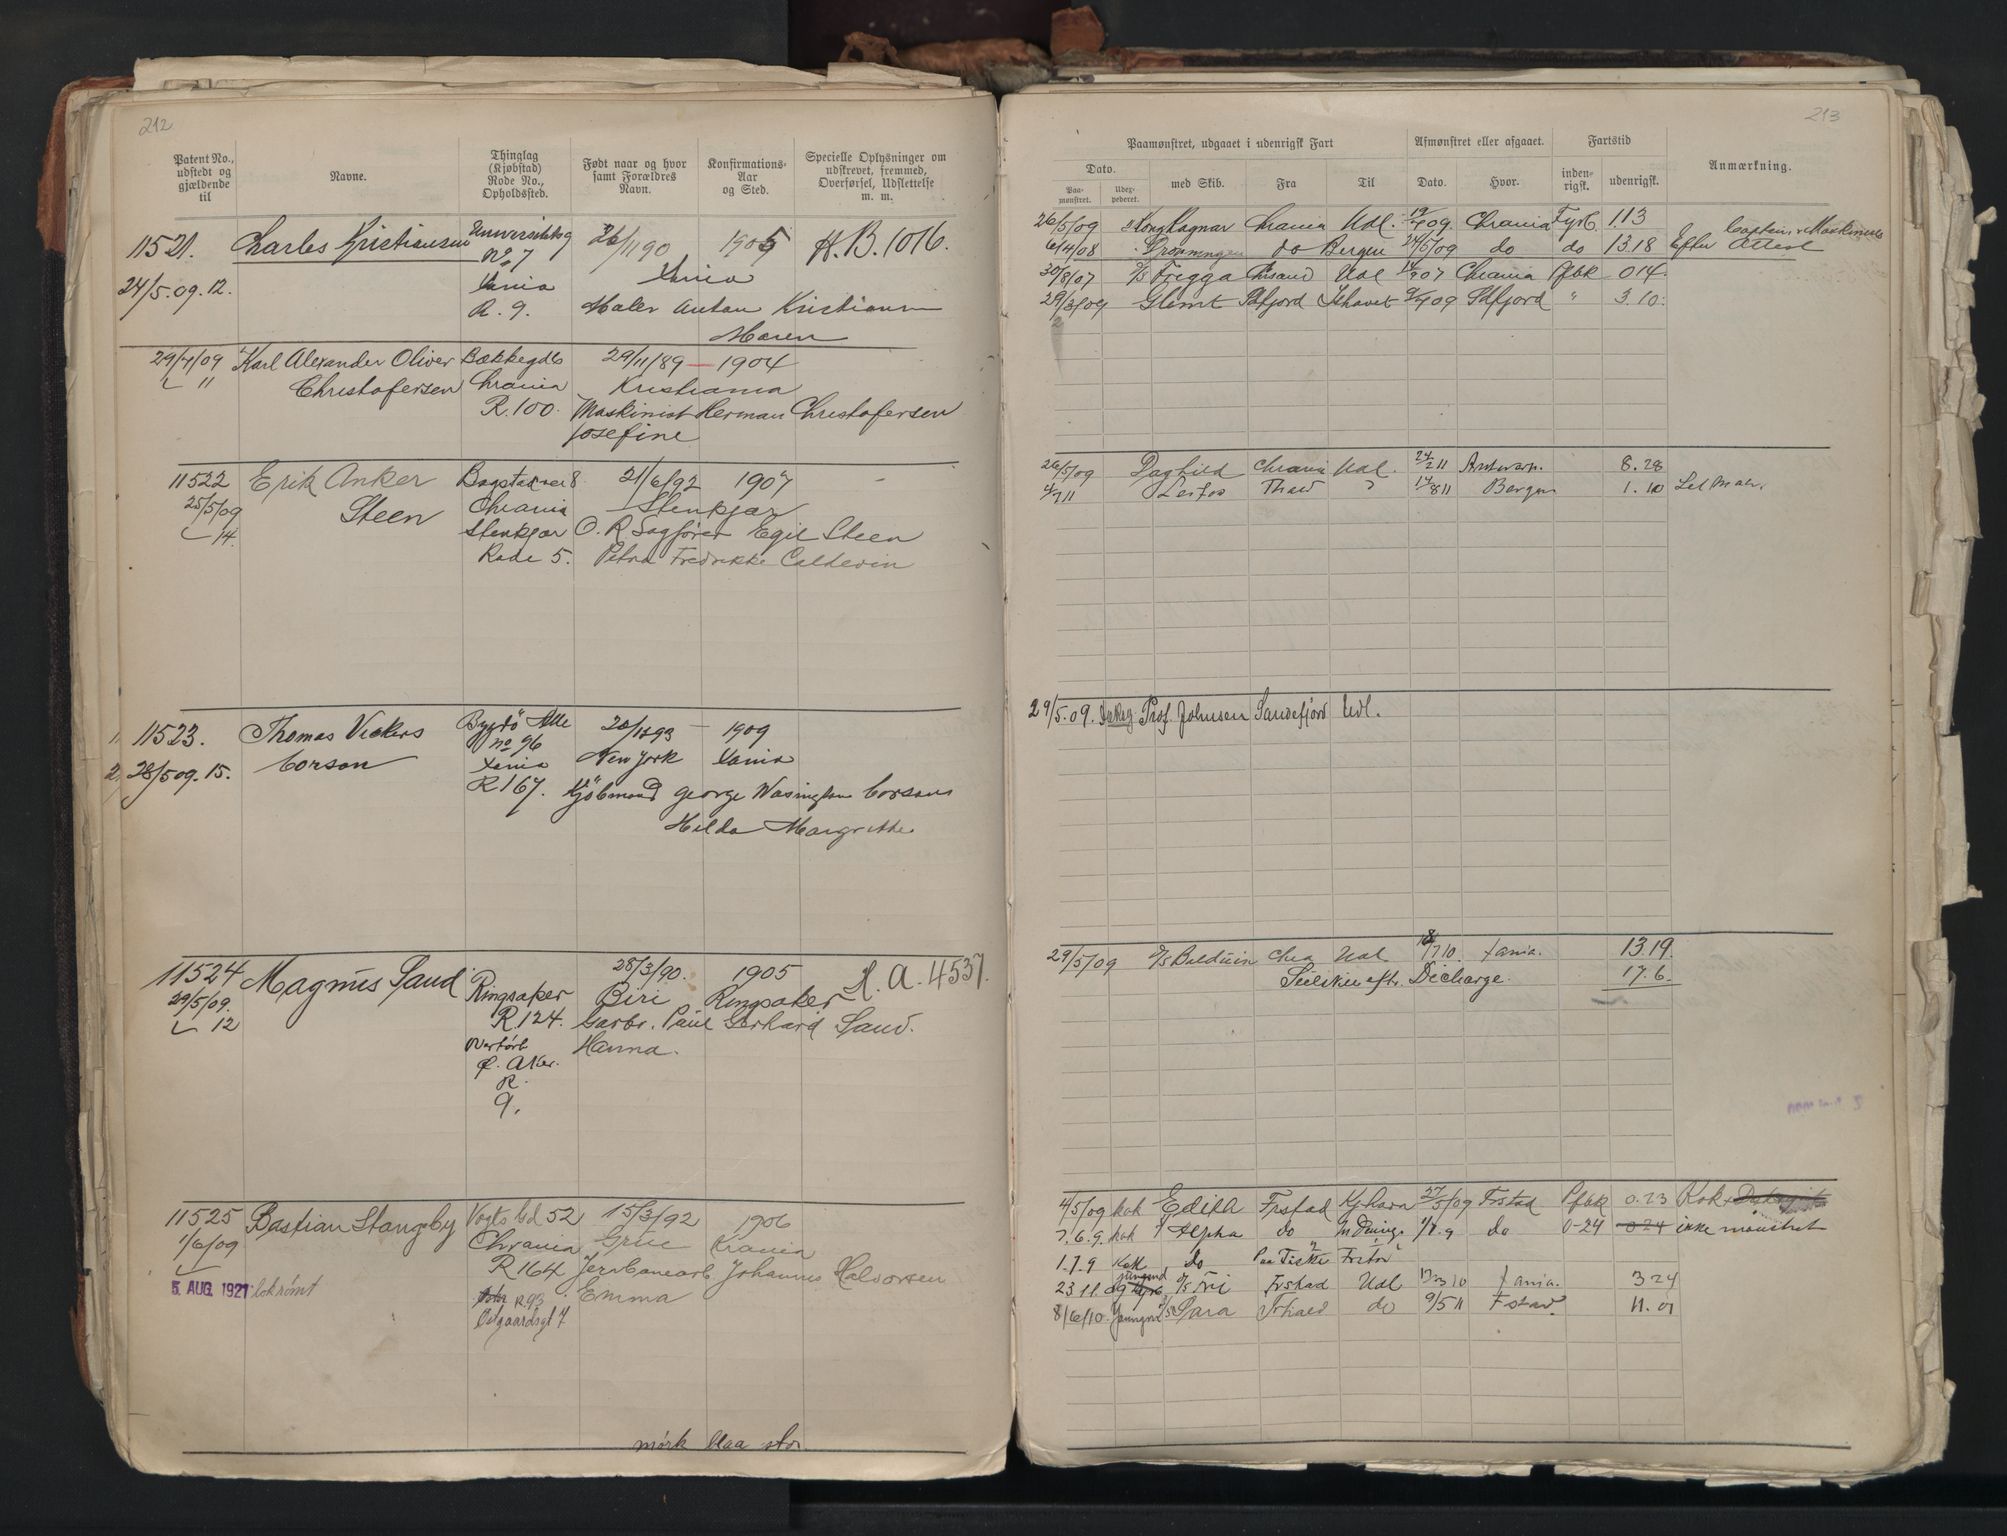 212
Patent No., udstedt og gjældende til
Navne.
Thinglag (Kjøbstad) Rode No., Opholdssted.
Født naar og hvor samt Forældres Navn.
Konfirmations-Aar og Sted.
Specielle Oplysninger om udskrevet, fremmed, Overførsel, Udslettelse m. m.
11521. Charles Kristiansen Universitetsg 26/11 90 1905 H.B.1016.
No 7
24/5.09.12. Xania Xania
R. 9. Maler Anton Kristiansen
Maren
29/4/09 Karl Alexander Oliver Bækkegd 6 29/11/89 — 1904
11 Christofersen Chrania Kristiania
R.100. Maskinist Herman Christofersen
Josefine
11522 Erik Anker Bogstadvei 8 21/6/92 1907
25/5/09 Steen Chrania Stenkjær
14. Stenkjær O.R. Sagfører Egil Steen
Rode 5. Petra Fredrikke Caldevin
11523. Thomas Vickers Bygdö Alle 20/12 93 — 1909
no 96
28/5 09.15. Corson Xania New York Xania
R 167. Kjöbmand George Wasington Corsons
Hilda Margrethe
11524 Magnus Sand Ringsaker 28/3/90. 1905 H. A. 4537.
29/5/09. Biri Ringsaker
12 R.124. Garbr. Paul Gerhard Sand.
Overført Hanna.
Ø. Aker.
R.
9.
11525 Bastian Stangeby Vogts Gd 52 15/3/92 1906
1/6/09 Chrania Grue Krania
R 164 Jernbanearb. Johannes Halvorsen
5. AUG. 1921 R.93 Emma
Østgaardsgt 7
mørk blaa stor
213
Paamønstret, udgaaet i udenrigsk Fart
Afmønstret eller afgaaet.
Fartstid
Anmærkning.
Dato.
Paa-monstret.
Udex-pederet.
med Skib.
Fra
Til
Dato.
Hvor.
inden-rigsk.
udenrigsk.
26/5/09 Kong Ragnar Chrania Udl. 19/7 09 Chrania Fyrb. 1 13
6/4/08 Dronningen do Bergen 24/5/09 do do 13.18 Efter Attest
30/8/07 D/S Frigga Chrania 07 Chrania Pfbk 0 14.
29/3/09 Glimt Ishavet 09 " 3.10.
26/5/09 Daghild Chrania Udl. 24/2 11 Antwerp. 8.28
4/7 11 Lesfos Thavn 17/8 11 Bergen 1.10
29/5.09. Prof. Johnsen Sandefjord Udl.
29/5/09 D/S Balduin Chra Udl 18/7 10. Xania. 13.19.
Seilskii eft. Decharge. 17.6.
4/5/09 kok Edith Frstad Kjhavn 27/5/09 Frstad Pfbk 0.23 Kok
7.6.9. kok Alpha do 1/7.9 do 0-24 0 24 ikke mønstret
1.7.9 Kok do Paa Fiske
23 11 D/S Fri Frstad Udl 10 Xania. 3 24
8/6/10. Jungmd D/S Sara Frhald do 9/5 11 Fstad. 11.01